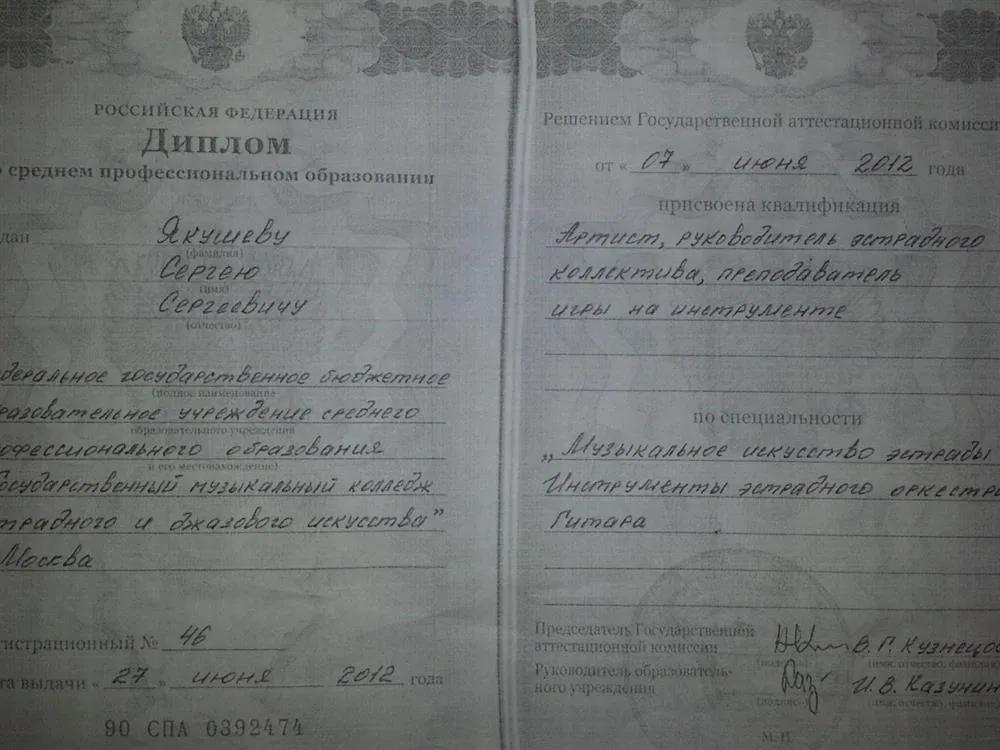 РОССИЙСКАЯ ФЕДЕРАЦИЯ
Диплом
о среднем профессиональном образовании
дан Якушеву
(фамилия)
Сергею
(имя)
Сергеевичу
(отчество)
деральное государственное бюджетное
(полное наименование
разовательное учреждение среднего
образовательного учреждения
офессионального образования
и его местонахождение)
осударственный музыкальный колледж
традного и джазового искусства"
Москва
гистрационный № 46
та выдачи « 27 » июня 2012 года
90 СПА 0392474
Решением Государственной аттестационной комисси
от « 07 » июня 2012 года
присвоена квалификация
Артист, руководитель эстрадного
коллектива, преподаватель
игры на инструменте
по специальности
„Музыкальное искусство эстрады
Инструменты эстрадного оркестра
Гитара
Председатель Государственной
аттестационной комиссии В. Г. Кузнецов
(подпись) (имя, отчество, фамилия
Руководитель образователь-
ного учреждения И. В. Казунин
(подпись) (имя, отчество, фамилия
М.П.